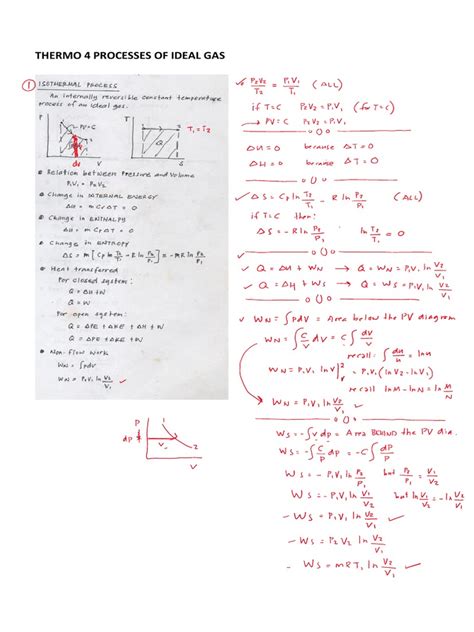 THERMO 4 PROCESSES OF IDEAL GAS
① ISOTHERMAL PROCESS
An internally reversible constant temperature
process of an ideal gas.
P
PV=C
dV
V
T
Q
S
T₁ = T₂
Relation between Pressure and Volume
P₁V₁ = P₂V₂
Change in INTERNAL ENERGY
ΔU = m Cv ΔT = 0
Change in ENTHALPY
ΔH = m Cp ΔT = 0
Change in ENTROPY
ΔS = m [Cp ln T₂/T₁ - R ln P₂/P₁] = -mR ln P₂/P₁
Heat transferred
For closed system:
Q = ΔU + W
Q = W
For open system:
Q = ΔPE + ΔKE + ΔH + W
Q = ΔPE + ΔKE + W
Non-flow work
WN = ∫PdV
WN = P₁V₁ ln V₂/V₁ ✓
P
dP
V
1
2
V
P₂V₂/T₂ = P₁V₁/T₁ (ALL)
if T=C P₂V₂ = P₁V₁ (for T=C)
→ PV = C P₂V₂ = P₁V₁
ΔU = 0 because ΔT = 0
ΔH = 0 because ΔT = 0
ΔS = Cp ln T₂/T₁ - R ln P₂/P₁ (ALL)
if T=C then:
ΔS = -R ln P₂/P₁ ln T₂/T₁ = 0
Q = ΔU + WN → Q = WN = P₁V₁ ln V₂/V₁
Q = ΔH + WS → Q = WS = P₁V₁ ln V₂/V₁
WN = ∫PdV = Area below the PV diagram
WN = ∫ C/V dV = C ∫ dV/V
recall: ∫ du/u = ln u
WN = P₁V₁ ln V|₁² = P₁V₁ (ln V₂ - ln V₁)
recall ln M - ln N = ln M/N
WN = P₁V₁ ln V₂/V₁ ✓
WS = -∫Vdp = Area BEHIND the PV dia.
WS = -∫ C/P dP = -C ∫ dP/P
WS = -P₁V₁ ln P₂/P₁ but P₂/P₁ = V₁/V₂
WS = -P₁V₁ ln V₁/V₂ but ln V₁/V₂ = -ln V₂/V₁
WS = P₁V₁ ln V₂/V₁ ✓
WS = P₂V₂ ln V₂/V₁
WS = mRT₁ ln V₂/V₁ ✓